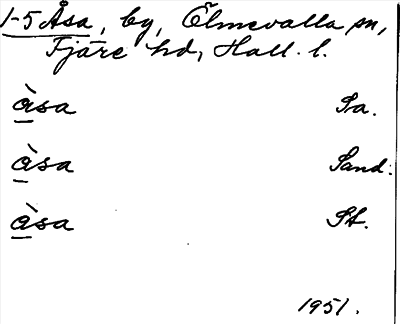 1-5 Åsa, by, Ölmevalla sn,
Fjäre hd, Hall. l.
àsa Sa.
àsa Sand.
àsa St.
1951.